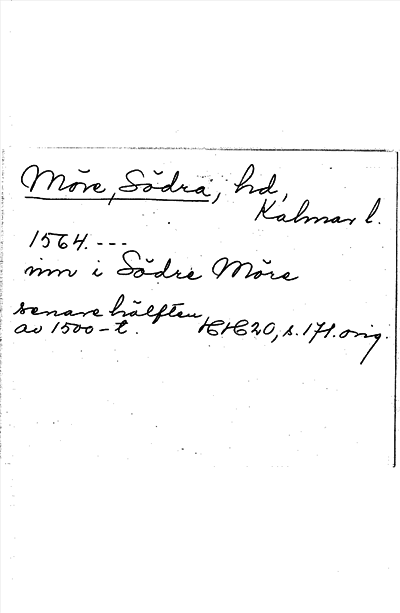 Möre, Södra, hd,
Kalmar l.
1564.---
inn i Södre Möre
senare hälften
av 1500-t. HH20, s. 171. orig.